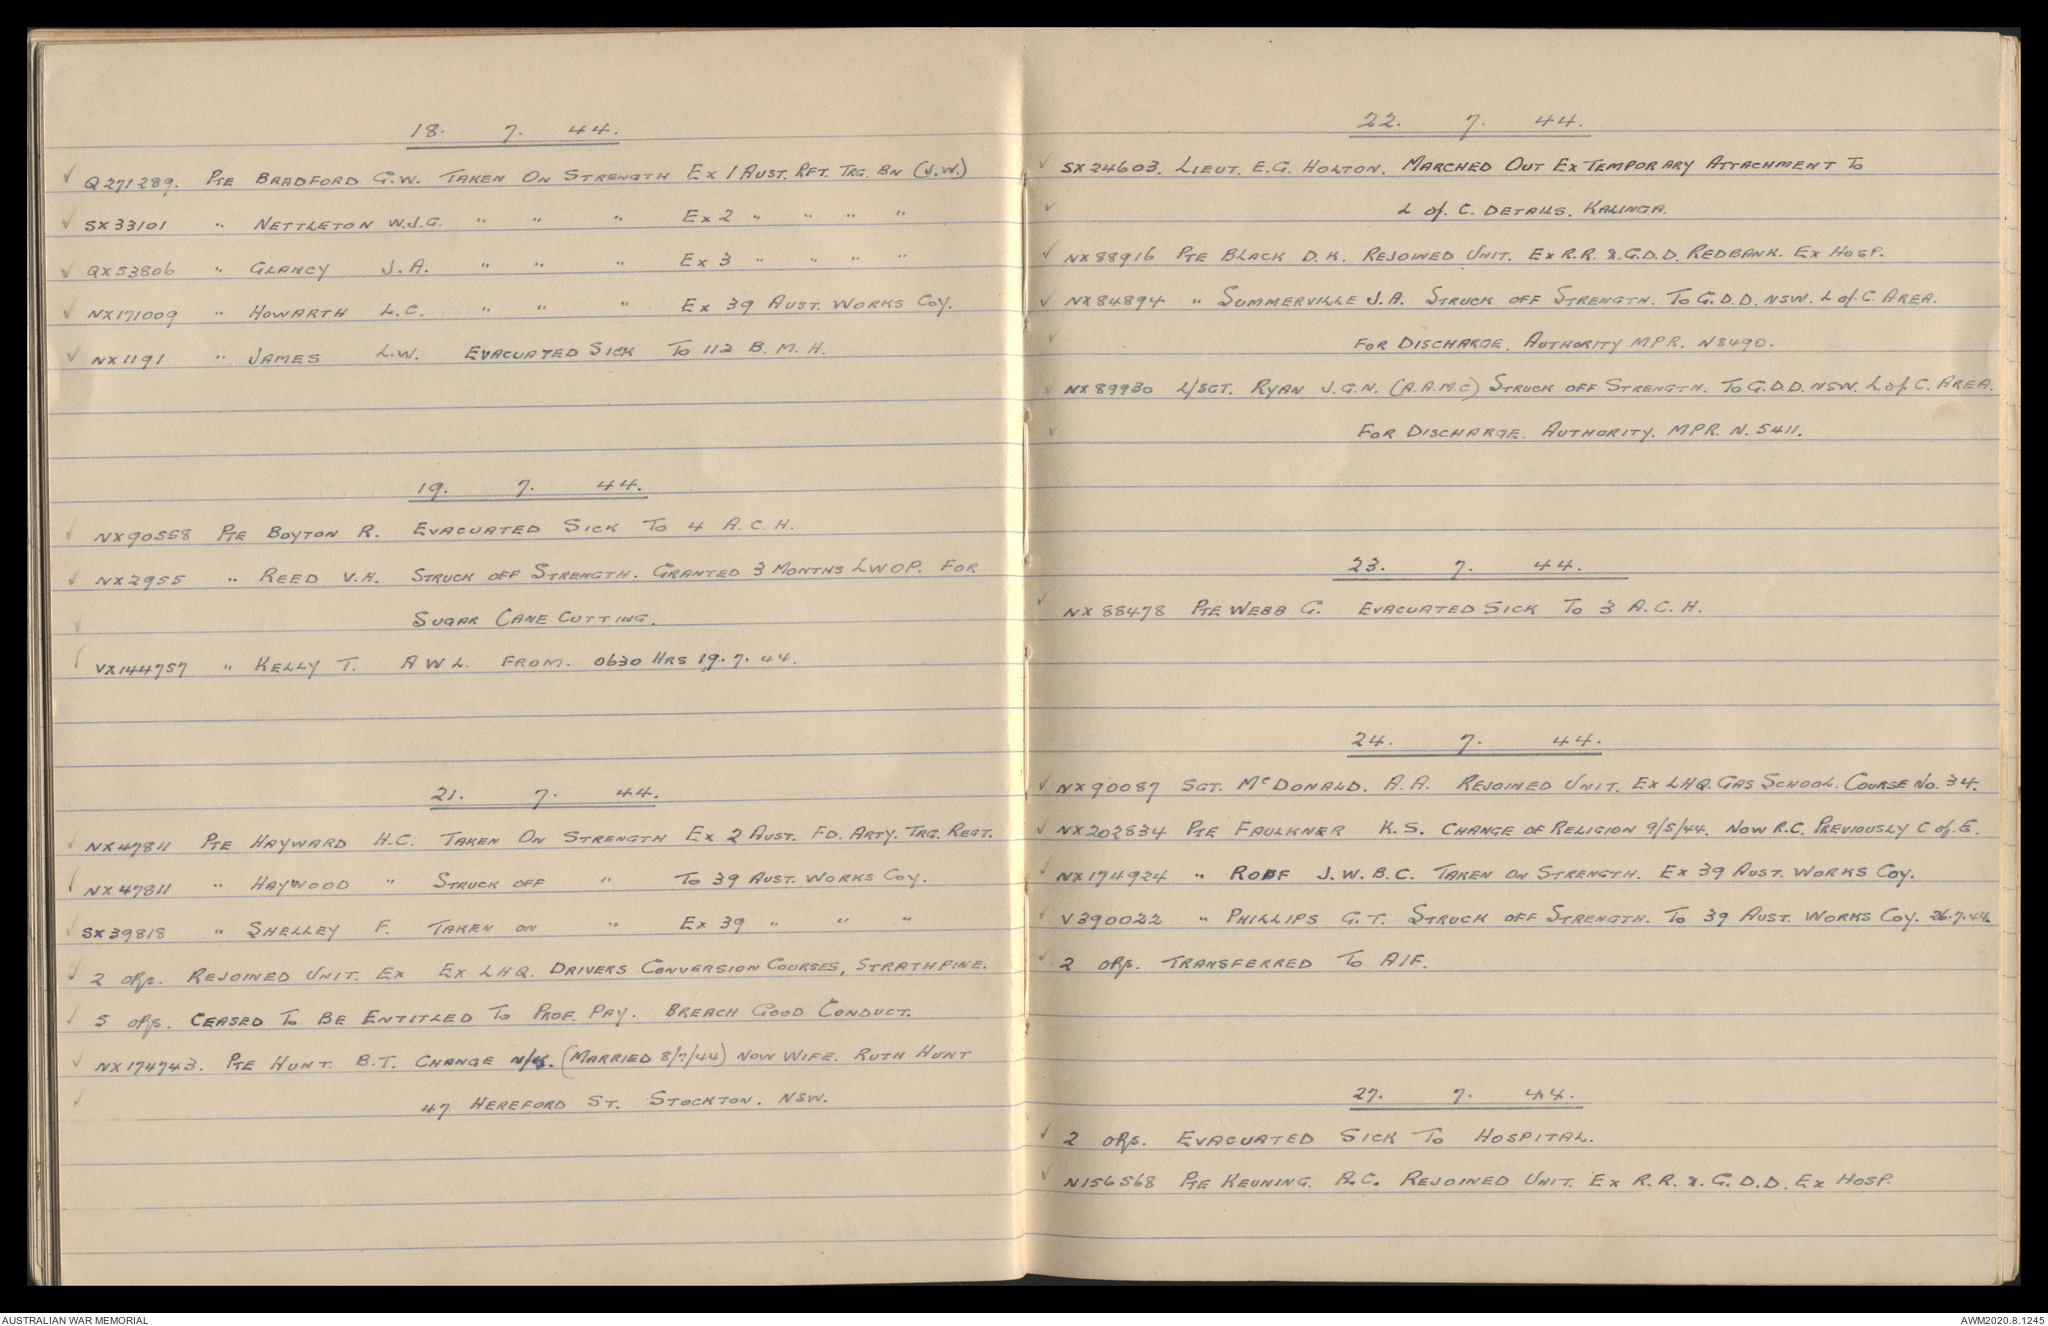 18. 7. 44.
✓ Q271289. Pte BRADFORD G.W. TAKEN ON STRENGTH Ex 1 AUST. RFT. TRG. BN (J.W.)
✓ SX33101 " NETTLETON W.J.G. " " " Ex 2 " " " "
✓ QX53806 " GLANCY J.A. " " " Ex 3 " " " "
✓ NX171009 " HOWARTH L.C. " " " Ex 39 AUST. WORKS COY.
✓ NX1191 " JAMES L.W. EVACUATED SICK TO 112 B.M.H.
19. 7. 44.
✓ NX90558 Pte BOYTON R. EVACUATED SICK TO 4 A.C.H.
✓ NX2955 " REED V.H. STRUCK OFF STRENGTH. GRANTED 3 MONTHS LWOP. FOR
✓ SUGAR CANE CUTTING.
✓ VX144757 " KELLY T. A W L. FROM. 0630 HRS 19.7.44.
21. 7. 44.
✓ NX47811 Pte HAYWARD H.C. TAKEN ON STRENGTH Ex 2 AUST. FD. ARTY. TRG. REGT.
✓ NX47811 " HAYWOOD " STRUCK OFF " TO 39 AUST. WORKS COY.
✓ SX39818 " SHELLEY F. TAKEN ON " Ex 39 " " "
✓ 2 ORs. REJOINED UNIT. Ex Ex LHQ. DRIVERS CONVERSION COURSES, STRATHPINE.
✓ 5 ORs. CEASED TO BE ENTITLED TO PROF. PAY. BREACH GOOD CONDUCT.
✓ NX174743. Pte HUNT. B.T. CHANGE N/K. (MARRIED 8/7/44) NOW WIFE. RUTH HUNT
✓ 47 HEREFORD ST. STOCKTON. NSW.
22. 7. 44.
✓ SX24603. LIEUT. E.G. HOLTON. MARCHED OUT Ex TEMPORARY ATTACHMENT TO
✓ L of C. DETAILS. KALINGA.
✓ NX88916 Pte BLACK D.K. REJOINED UNIT. Ex R.R. & G.D.D. REDBANK. Ex HOSP.
✓ NX84894 " SUMMERVILLE J.A. STRUCK OFF STRENGTH. TO G.D.D. NSW. L of C. AREA.
✓ FOR DISCHARGE. AUTHORITY MPR. N8490.
✓ NX89930 L/SGT. RYAN J.G.N. (A.A.M.C) STRUCK OFF STRENGTH. TO G.D.D. NSW. L of C. AREA.
✓ FOR DISCHARGE. AUTHORITY. MPR. N. 5411.
23. 7. 44.
✓ NX88478 Pte WEBB G. EVACUATED SICK TO 3 A.C.H.
24. 7. 44.
✓ NX90087 SGT. McDONALD. A.A. REJOINED UNIT. Ex LHQ. GAS SCHOOL. COURSE No. 34.
✓ NX202834 Pte FAULKNER K.S. CHANGE OF RELIGION 9/5/44. NOW R.C. PREVIOUSLY C of E.
✓ NX174924 " ROFF J.W.B.C. TAKEN ON STRENGTH. Ex 39 AUST. WORKS COY.
✓ V390022 " PHILLIPS G.T. STRUCK OFF STRENGTH. TO 39 AUST. WORKS COY. 26.7.44
✓ 2 ORs. TRANSFERRED TO AIF.
27. 7. 44.
✓ 2 ORs. EVACUATED SICK TO HOSPITAL.
✓ N156568 Pte KEUNING. A.C. REJOINED UNIT. Ex R.R. & G.D.D. Ex HOSP.
AUSTRALIAN WAR MEMORIAL
AWM2020.8.1245